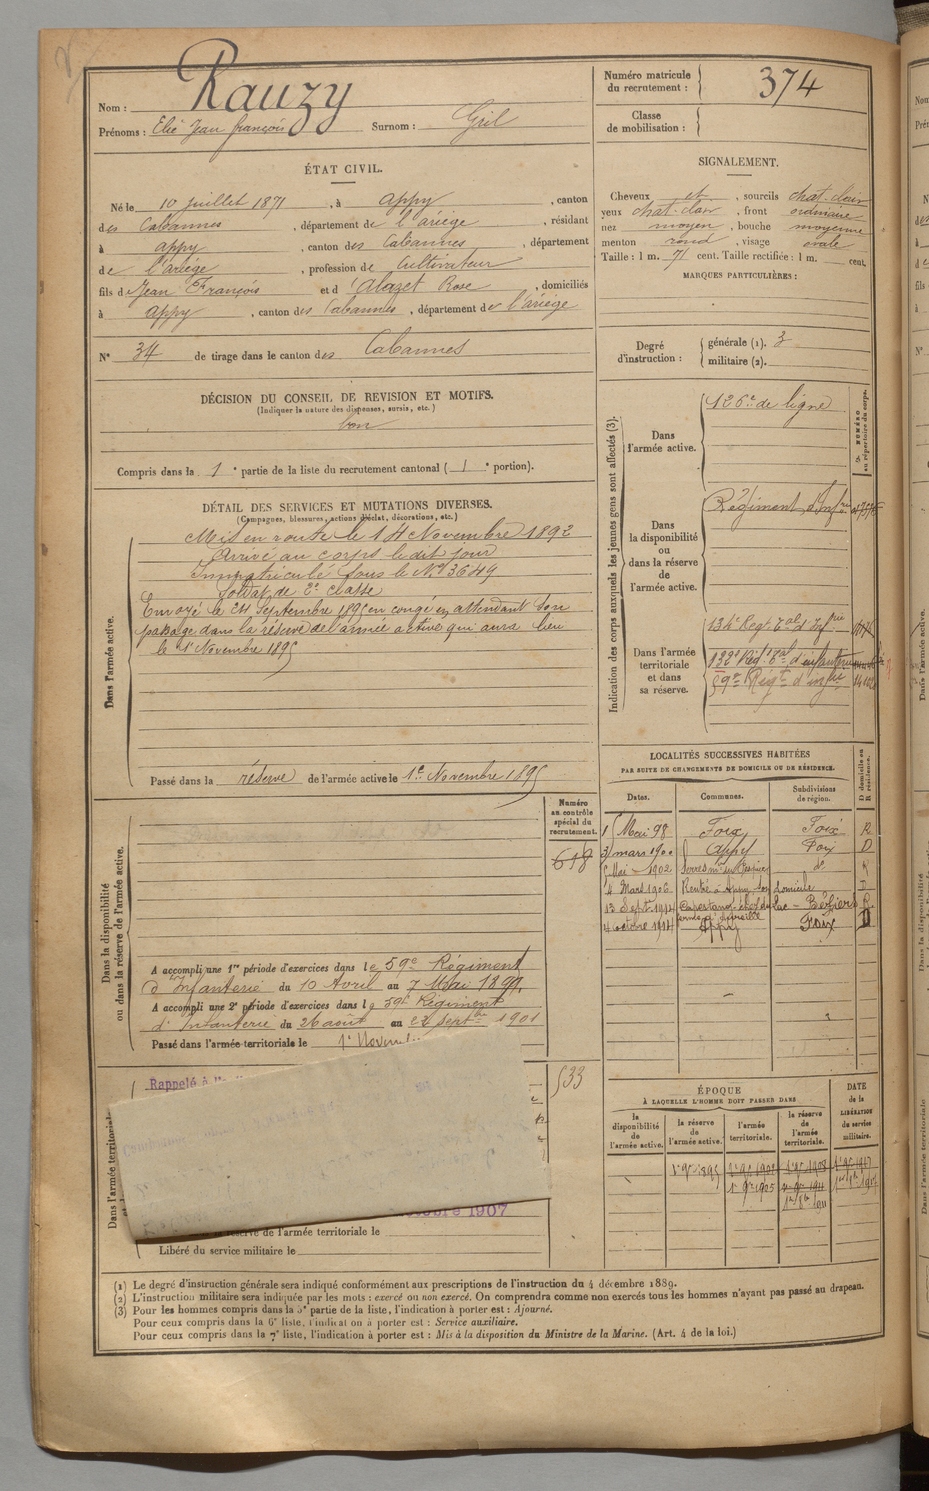 Nom : Rauzy
Prénoms : Elie Jean françois Surnom : Gril
Numéro matricule du recrutement : 374
Classe de mobilisation :
ÉTAT CIVIL.
Né le 10 juillet 1871, à Appy, canton
des Cabannes, département de l'ariège, résidant
à appy, canton des Cabannes, département
de l'ariège, profession de Cultivateur
fils de Jean François et d'Alazet Rose, domiciliés
à appy, canton des Cabannes, département de l'ariège
N° 34 de tirage dans le canton des Cabannes
SIGNALEMENT.
Cheveux et, sourcils chat. clair
yeux chat. clair, front ordinaire
nez moyen, bouche moyenne
menton rond, visage ovale
Taille : 1 m. 71 cent. Taille rectifiée : 1 m. cent.
MARQUES PARTICULIÈRES :
Degré d'instruction : générale (1). 3
militaire (2).
DÉCISION DU CONSEIL DE REVISION ET MOTIFS.
(Indiquer la nature des dispenses, sursis, etc.)
bon
Compris dans la 1e partie de la liste du recrutement cantonal (1e portion).
DÉTAIL DES SERVICES ET MUTATIONS DIVERSES.
(Campagnes, blessures, actions d'éclat, décorations, etc.)
Dans l'armée active.
Mis en route le 14 Novembre 1892
Arrivé au corps le dit jour
Immatriculé sous le N° 3649
Soldat de 2e classe
Envoyé le 24 Septembre 1895 en congé en attendant son
passage dans la réserve de l'armée active qui aura lieu
le 1er Novembre 1895
Passé dans la réserve de l'armée active le 1er Novembre 1895
Indication des corps auxquels les jeunes gens sont affectés (3).
NUMÉRO au répertoire du corps.
Dans l'armée active.
126e de ligne
Dans la disponibilité ou dans la réserve de l'armée active.
Régiment d'Infrie
Dans l'armée territoriale et dans sa réserve.
134e Regt Tal d'Infrie
132e Régt Tal d'infanterie
59e Régt d'infrie
LOCALITÉS SUCCESSIVES HABITÉES
PAR SUITE DE CHANGEMENTS DE DOMICILE OU DE RÉSIDENCE.
Dates. Communes. Subdivisions de région. D domicile ou R résidence.
1 Mai 98 Foix Foix R
3 mars 1900 Appy Foix D
5 Mai 1902 do R
4 Mars 1906 Rentré à Appy son domicile D
13 Sept. 1912 Capestang Béziers R
4 octobre 1914 Appy Foix D
Dans la disponibilité ou dans la réserve de l'armée active.
Numéro au contrôle spécial du recrutement.
618
A accompli une 1re période d'exercices dans le 59e Régiment
d'Infanterie du 10 Avril au 7 Mai 1899.
A accompli une 2e période d'exercices dans le 59e Régiment
d'Infanterie du 26 août au 22 septbre 1901
Passé dans l'armée territoriale le 1er Novem
Dans l'armée territoriale
Rappelé à l'
533
1907
réserve de l'armée territoriale le
Libéré du service militaire le
ÉPOQUE
À LAQUELLE L'HOMME DOIT PASSER DANS
la disponibilité de l'armée active. la réserve de l'armée active. l'armée territoriale. la réserve de l'armée territoriale. DATE de la LIBÉRATION du service militaire.
1er 9bre 1895 1er 9bre 1905
(1) Le degré d'instruction générale sera indiqué conformément aux prescriptions de l'instruction du 4 décembre 1889.
(2) L'instruction militaire sera indiquée par les mots : exercé ou non exercé. On comprendra comme non exercés tous les hommes n'ayant pas passé au drapeau.
(3) Pour les hommes compris dans la 5e partie de la liste, l'indication à porter est : Ajourné.
Pour ceux compris dans la 6e liste, l'indication à porter est : Service auxiliaire.
Pour ceux compris dans la 7e liste, l'indication à porter est : Mis à la disposition du Ministre de la Marine. (Art. 4 de la loi.)